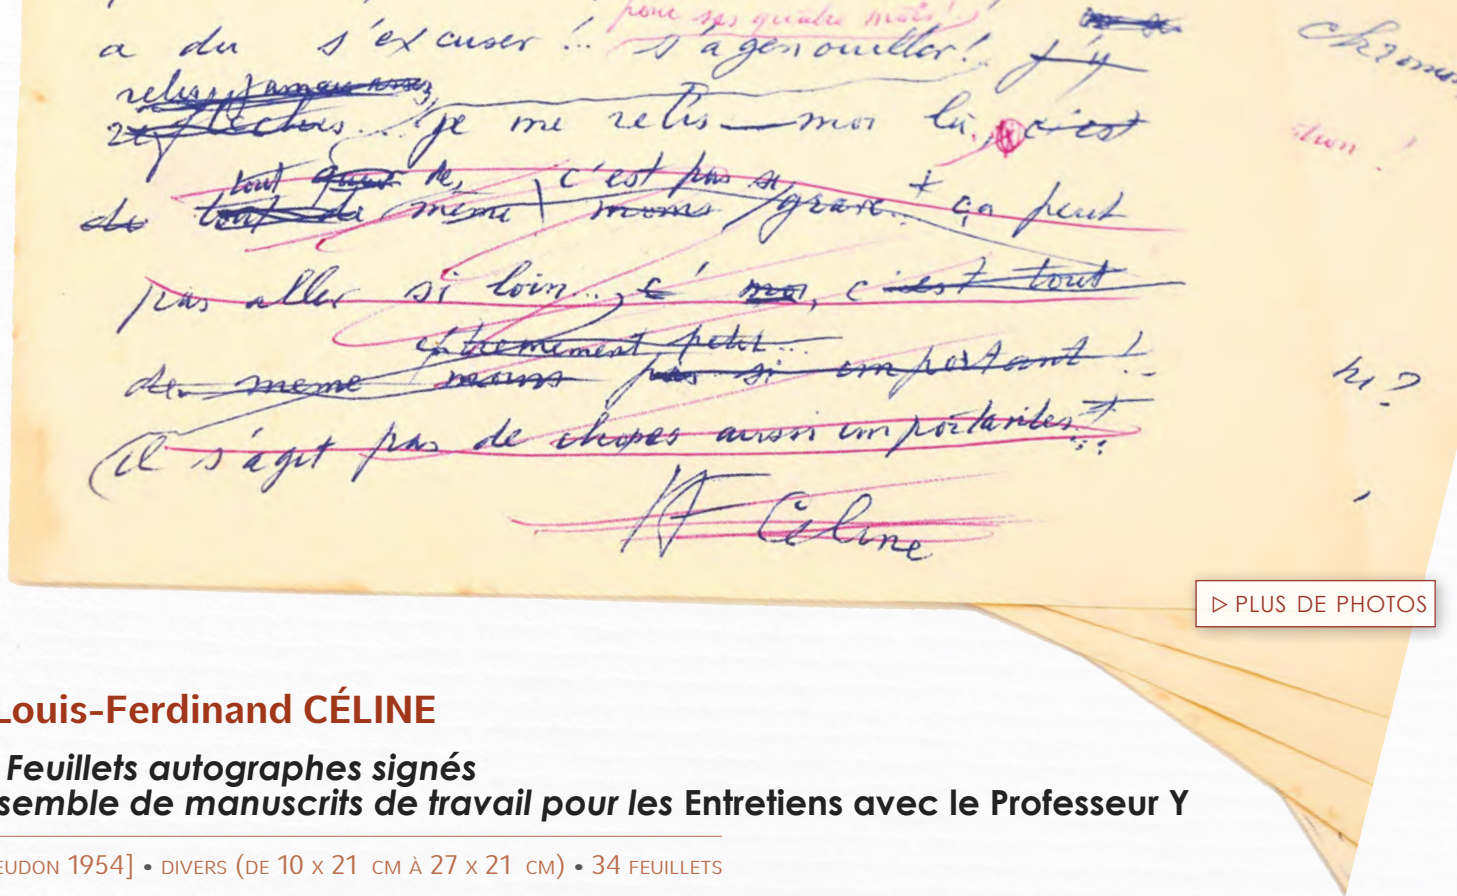 pour ses quatre mots!
a du s'excuser!... s'agenouiller! j'y
relis
réfléchis... je me relis moi là, c'est
tout de, c'est pas si,
de tout de même moins grave... + ça peut
pas aller si loin..., c' moi, c'est tout
extrêmement petit...
de même moins pas si important!
il s'agit pas de choses aussi importantes!...
LF Céline
tion!
hi?
▷ PLUS DE PHOTOS
Louis-Ferdinand CÉLINE
Feuillets autographes signés
semble de manuscrits de travail pour les Entretiens avec le Professeur Y
EUDON 1954] • DIVERS (DE 10 X 21 CM À 27 X 21 CM) • 34 FEUILLETS